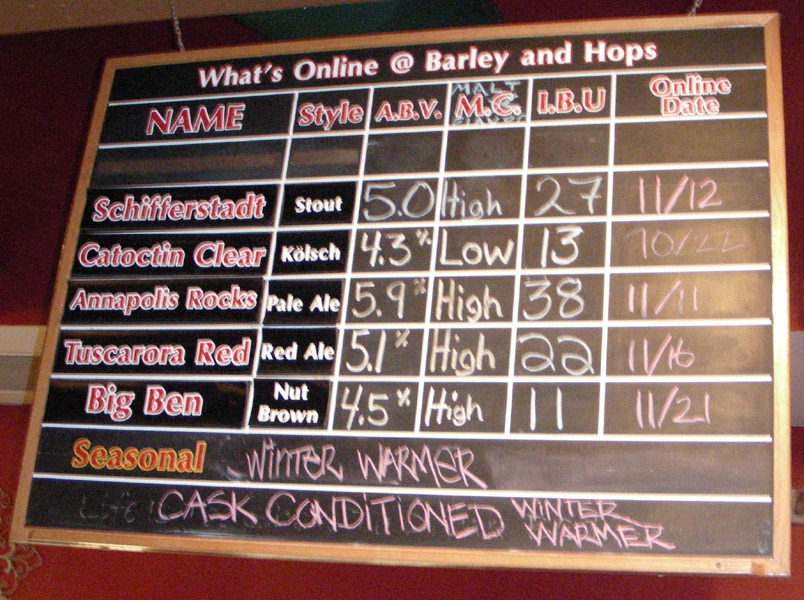 What's Online @ Barley and Hops
NAME Style A.B.V. MALT M.C. I.B.U Online Date
Schifferstadt Stout 5.0 High 27 11/12
Catoctin Clear Kölsch 4.3% Low 13 10/22
Annapolis Rocks Pale Ale 5.9% High 38 11/11
Tuscarora Red Red Ale 5.1% High 22 11/16
Big Ben Nut Brown 4.5% High 11 11/21
Seasonal WINTER WARMER
CASK CONDITIONED WINTER WARMER